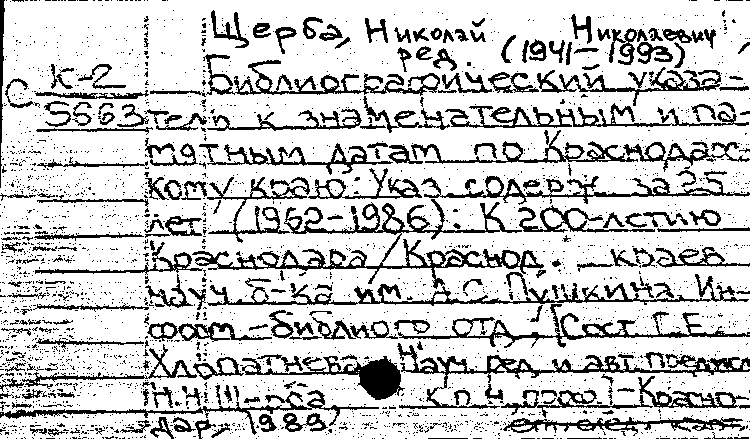 Щерба, Николай Николаевич,
ред. (1941–1993)
К-2 Библиографический указа-
С 5663 тель к знаменательным и па-
мятным датам по Краснодарс-
кому краю: Указ содерж за 25
лет (1962–1986): К 200-летию
Краснодара / Краснод. краев
науч. б-ка им. А С Пушкина. Ин-
форм.-библиогр отд; [Сост Г.Е.
Хлопатнева Науч. ред. и авт. предисл
Н.Н Щ-рба, к п н, проф.]-Красно-
дар, 1989 см. след. карт.